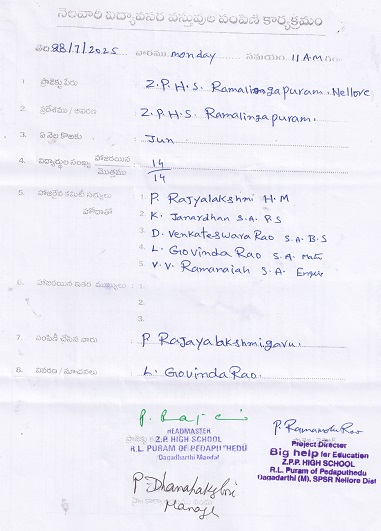 నెలవారీ విద్యావసర వస్తువుల పంపిణీ కార్యక్రమం
తేది 28/7/2025 వారము monday సమయం 11 AM గం.
1. ప్రాజెక్టు పేరు Z.P.H.S. Ramalingapuram. Nellore
2. ప్రదేశము / Z.P.H.S Ramalingapuram.
3. ఏ నెల కొరకు Jun
4. విద్యార్థుల సంఖ్య హాజరయిన 14
మొత్తము 14
5. హాజరైన కమిటీ సభ్యులు 1. P. Rajyalakshmi H.M
హోదాతో 2. K. Janardhan S.A. P.S
3. D. Venkateswara Rao S.A. B.S
4. L. Govinda Rao S.A. Mats
5. V.V. Ramanaiah S.A.
6. హాజరయిన ఇతర ముఖ్యులు : 1.
2.
3.
7. పంపిణీ చేసిన వారు P Rajayalakshmigaru.
8. వివరణ / సూచనలు L. Govinda Rao.
HEADMASTER
Z.P.P. HIGH SCHOOL
R.L. PURAM OF PEDAPUTHEDU
Dagadarthi Mandal
Project Director
Big help for Education
Z.P.P. HIGH SCHOOL
R.L. Puram of Pedaputhedu
Dagadarthi (M), SPSR Nellore Dist
P Dhanalakshmi